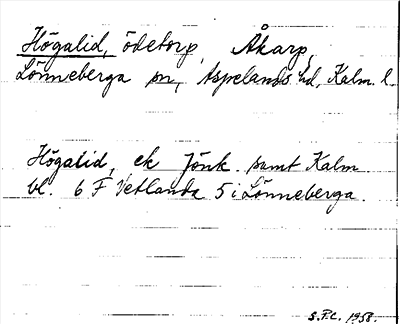 Högalid, ödetorp, Åkarp,
Lönneberga sn, Aspelands hd, Kalm. l.
Högalid, ek Jönk. samt Kalm
bl. 6 F Vetlanda 5 i Lönneberga.
S.F.C. 1958.